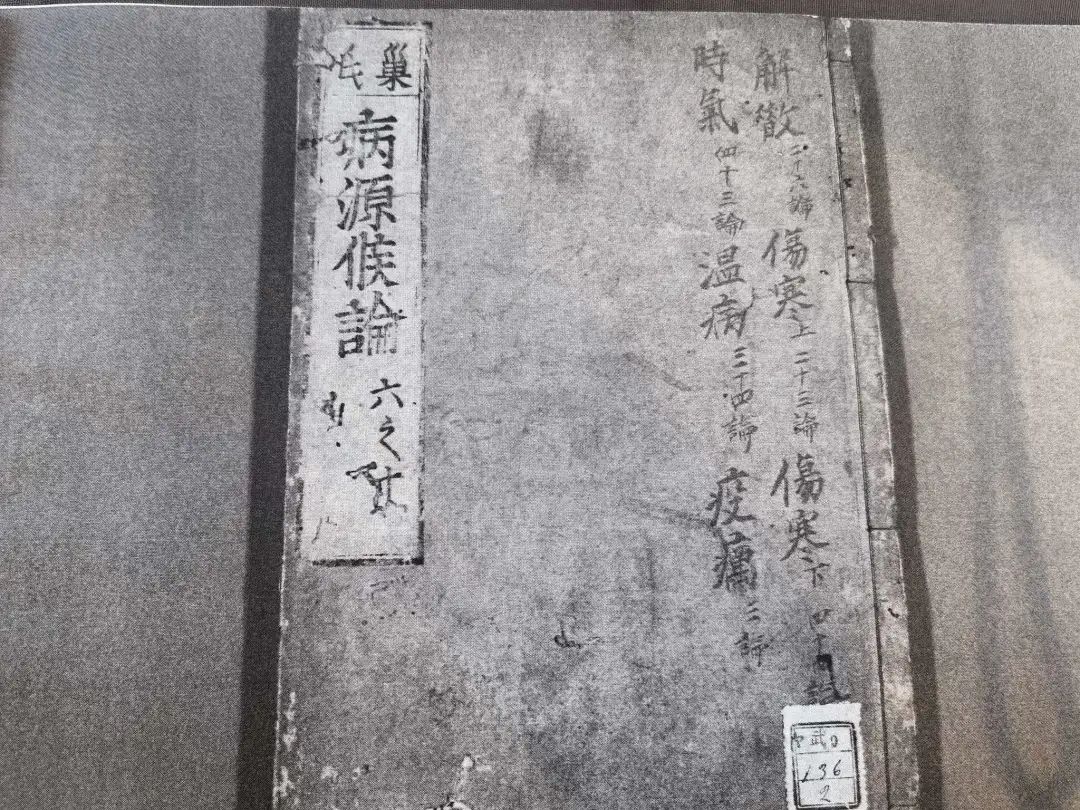 解散二十六論 傷寒上二十三論 傷寒下四十
時氣四十三論 温病三十四論 疫癘三論
巢氏
病源候論 六之
武
136
2